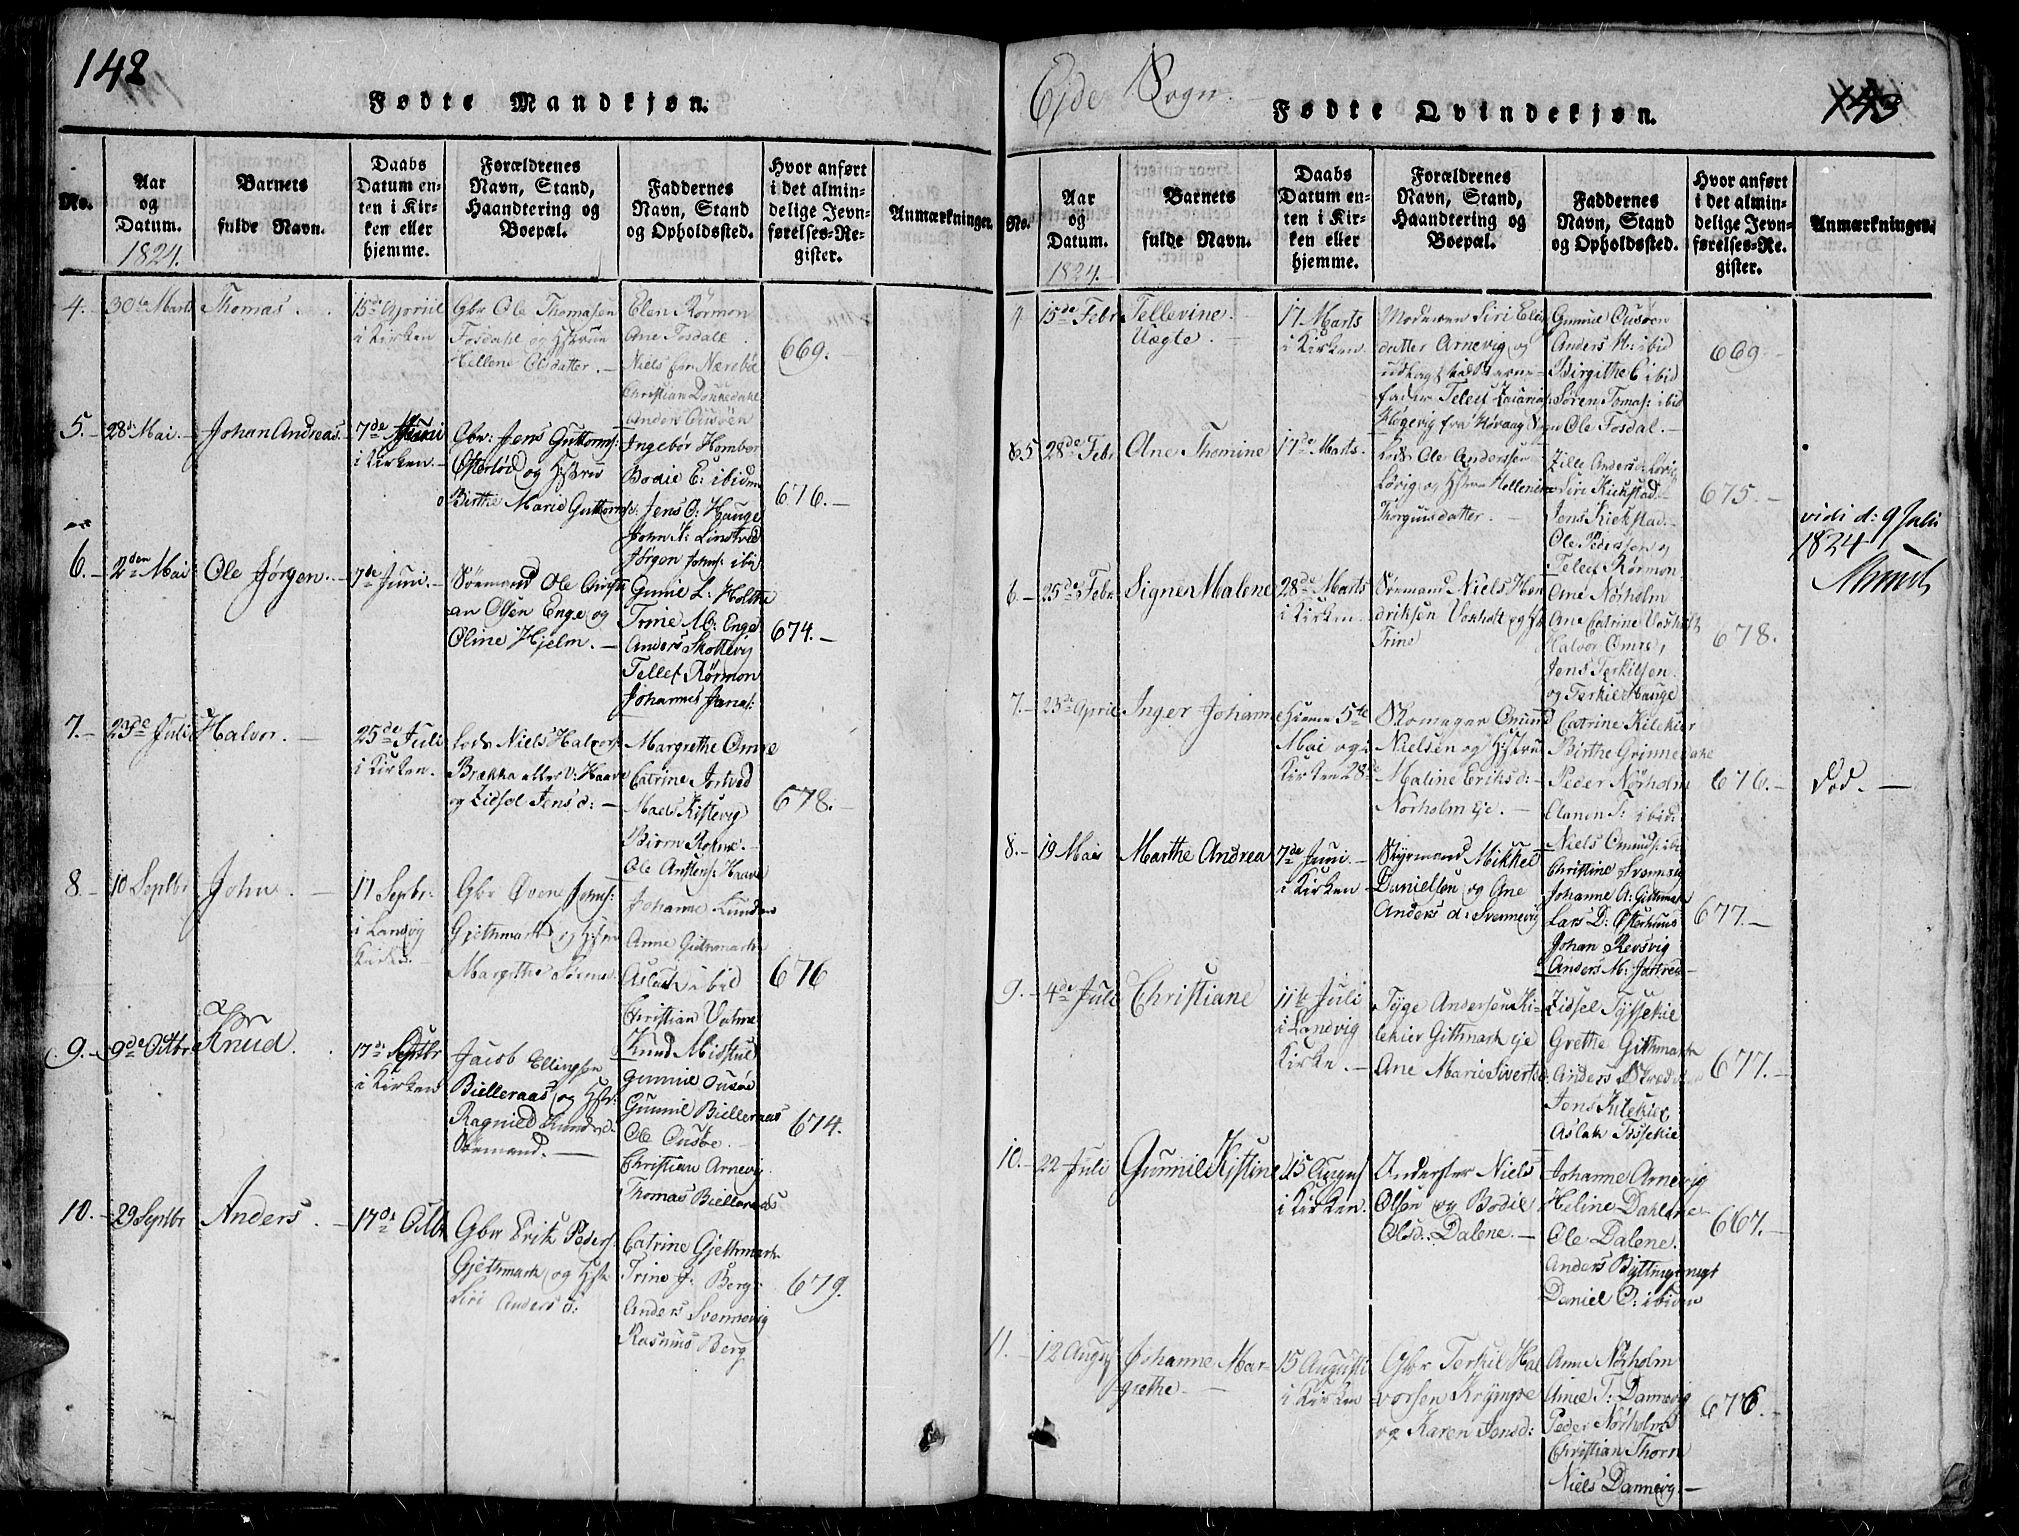 142
Fødte Mandkjøn.
No.
Aar
og
Datum.
1824.
Barnets
fulde Navn.
Daabs
Datum en-
ten i Kir-
ken eller
hjemme.
Forældrenes
Navn, Stand,
Haandtering og
Boepæl.
Faddernes
Navn, Stand
og Opholdssted.
Hvor anført
i det almin-
delige Jevn-
førelses-Re-
gister.
Anmærkninger.
4.
30te Marts
Thomas.
15de Apriil
i Kirken
Gbr Ole Thomasen
Fosdahl og Hstrue
Hellene Olsdatter.
Elen Rørmon
Ane Fosdahl
Niels
Christian Dønnesdahl
Anders Ousøen
669.
5.
28de Mai.
Johan Andreas.
7de Juni
i Kirken.
Gbr: Jens Guttorms:
Osterlød og Hstrue
Birthe Marie Guttorms:
Ingebør Hombor
Bodil E: ibidm
Jens O: Hauge
John N: Linstved
Jørgen Johns: ibid
676.
6.
2den Mai
Ole Jørgen.
7de Juni.
Sømand Ole Christi
an Olsen Enge og
Oline Hjelm.
Gunil L: Holthe
Trine M: Enge
Anders Skottevig
Tellef Rørmon
Johannes Jonas:
674.
7.
23de Juli
Halvor.
25de Juli
i Kirken.
Lods Niels Halvors:
Brække eller v: Haave
og Zidsel Jens d:
Margrethe Omre
Catrine Jortved
Maels Kistevig
Biørn Rohne.
Ole Antons: Haave
678.
8
10 Septbr
John.
17 Septbr:
i Landvig
Kirke.
Gbr Øven Johns:
Gjethmark og Hstr
Margrethe Sørens
Johanne Lunden
Anne Githmark
Aslach ibid
Christian Vatne
676
9.
9de Octbr
Knud.
17de Septbr
i Kirken
Jacob Ellingsen
Bielleraas og Hstr:
Ragnild Knuds d:
Sømand.
Knud Midskul
Gunnil Ousøe
Gunnil Bielleraas
Ole Ousøe.
Christian Arnevig
Thomas Bielleraas
674.
10.
29 Septbr
Anders.
17de Octb
Gbr Erik Peders:
Gjethmark og Hstr
Siri Anders d:
Catrine Gjethmark
Trine J: Berg
Anders Svennevig
Rasmus Berg
679.
Ejde Sogn.
143
Fødte Qvindekjøn.
No.
Aar
og
Datum.
1824.
Barnets
fulde Navn.
Daabs
Datum en-
ten i Kir-
ken eller
hjemme.
Forældrenes
Navn, Stand,
Haandtering og
Boepæl.
Faddernes
Navn, Stand
og Opholdssted.
Hvor anført
i det almin-
delige Jevn-
førelses-Re-
gister.
Anmærkninger.
4
15de Febr
Tellevine.
Uægte.
17 Marts
i Kirken.
Moderen Siri Elen
datter Arnevig og
udlagt til Barne-
fader Tellef Zacarias:
Høgevig fra Høvaag Sogn
Gunnil Ousøen
Anders N: ibid
Birgithe E ibid
Søren Tomas: ibid
Ole Fosdal.
669.
5
28de Febr
Ane Thomine
17de Marts.
Lods: Ole Anderssen
Løvig og Hstrue Hellene
Thorguusdatter.
Zille Anders: Løvig
Siri Kickstad.
Jens Kickstad.
Ole Pedersen og
Tellef Rørmon.
675.
vidi d: 9 Juli
1824
6.
25de Febr
Signe Malene
28de Marts
i Kirken.
Sømand Niels Hen
driksen Voxholt og Hst
Trine
Ane Nørholm
Ane Catrine Voxholt
Halvor Omre,
Jens Terkilsen.
og Terkiel Hauge
678.
7.
23de April
Inger Johanne
hjemme 5te
Mai og i
Kirken 28de
Skomager Omund
Nielsen og Hstrue
Maline Eriks d:
Nørholm Eje.
Catrine Kilekier
Birthe Grimnebake
Peder Nørholm
Elanen T: ibid:
Niels Omunds: ibid
676.
Død.
8.
19 Mai
Marthe Andrea
7de Juni.
i Kirken
Styrmand Mikkel
Danielsøn og Ane
Anders d: Svennevig
Christine Svennevig
Johanne A: Githmark
Lars D: Osterhuus
Johan Revsvig
Anders M: Jortved
677.
9.
4de Juli
Christiane
11te Juli
i Landvig
Kirke.
Tyge Andersen Ki-
lekier Githmark Eje
Ane Marie Sivertsd.
Zidsel Tyssekie
Grethe Githmark
Anders
Jens Kilekier
Aslak Tossekie
677.
10.
22 Juli
Gunnil Kistine
15 August
i Kirken.
Understyr Niels
Olsen og Bodil
Olsd: Dalene.
Johanne Arnevig
Heline Dahlene
Ole Dalene.
Anders Byttingsmyr
Daniel O: ibidm
667.
11.
12 August
Johanne Mar-
grethe
15 Augusti
i Kirken
Gbr Terkil Hal
vorsen Krømpe
og Karen Jensd:
Anne Nørholm
Amie T: Dannevig
Peder Nørholm
Christian Thorn
Niels Dannevig.
676.